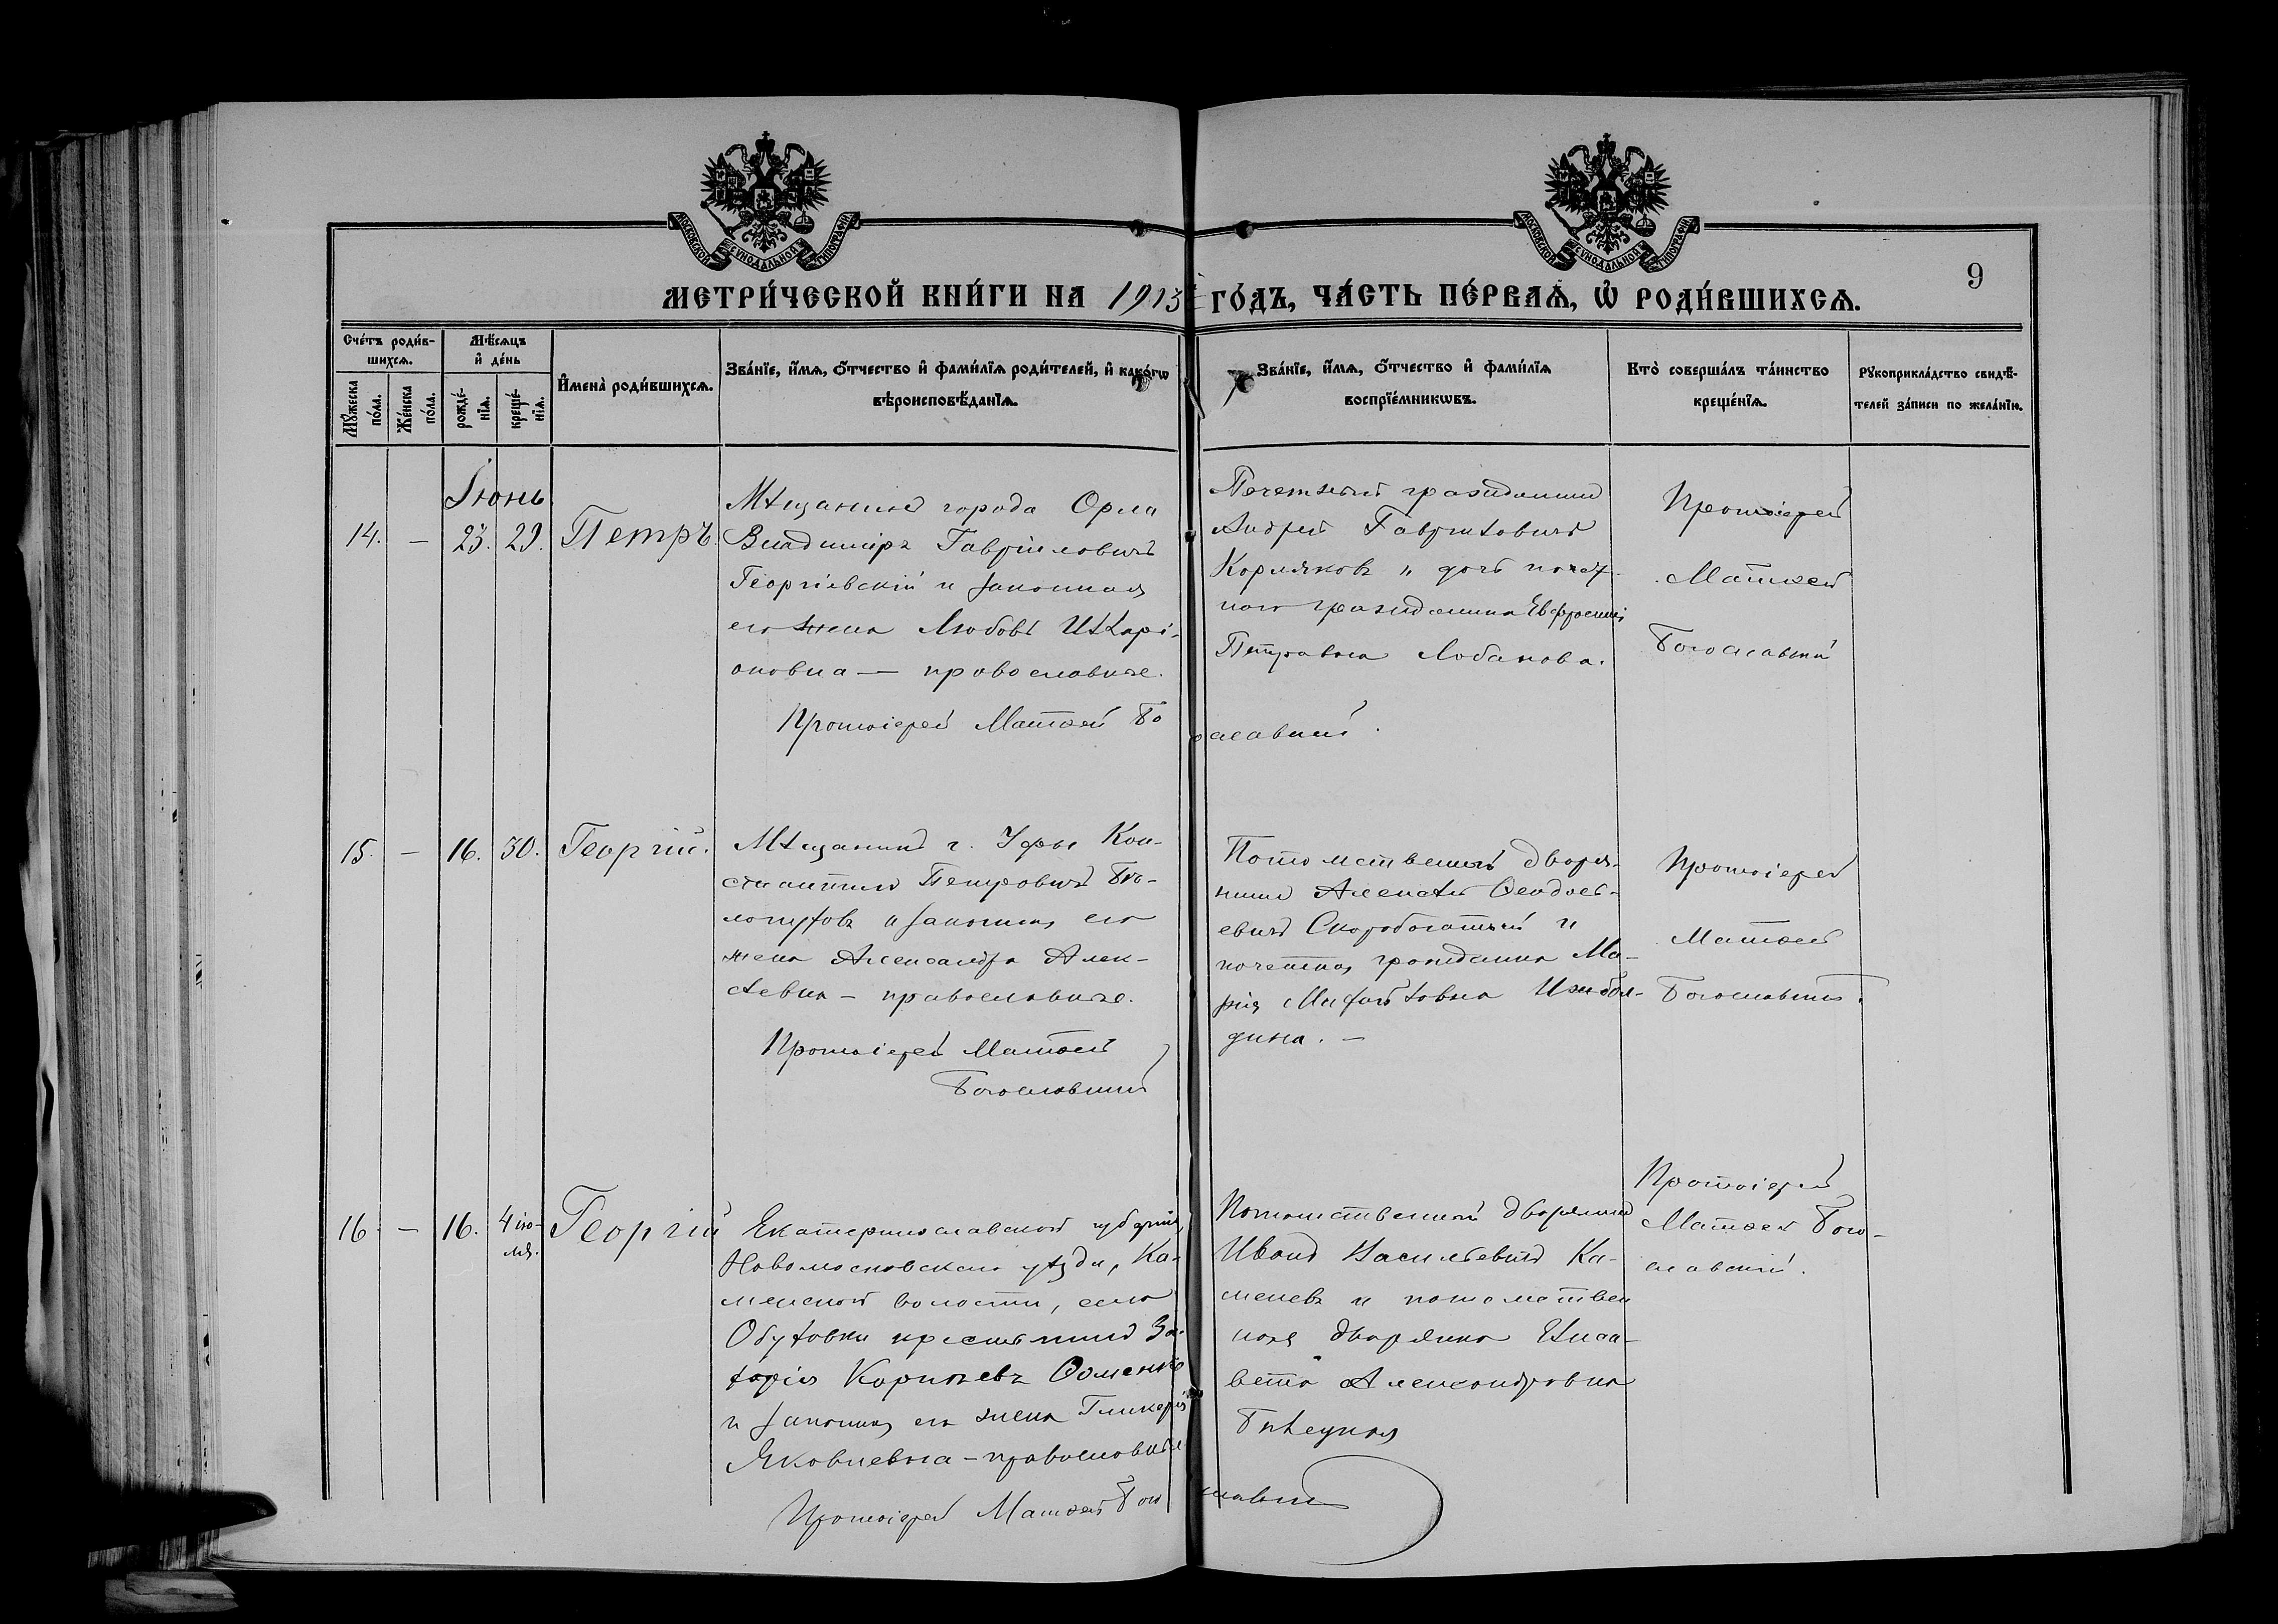 МОСКОВСКОЙ СѴНОДАЛЬНОЙ ТИПОГРАФІИ
МОСКОВСКОЙ СѴНОДАЛЬНОЙ ТИПОГРАФІИ
9
МЕТРИ́ЧЕСКОЙ КНИ́ГИ НА 1913 ГО́ДЪ, ЧА́СТЬ ПЕ́РВАѦ, Ѡ҆ РОДИ́ВШИХСѦ.
Сче́тъ роди́в-
шихсѧ.
Мꙋ́жеска по́ла.
Же́нска по́ла.
Мѣ́сѧцъ
и҆ де́нь
рожде́-нїѧ.
креще́-нїѧ.
И҆мена̀ роди́вшихсѧ.
Зва́нїе, и҆́мѧ, ѻ҆́тчество и҆ фами́лїѧ роди́телей, и҆ како́гѡ
вѣроисповѣ́данїѧ.
Зва́нїе, и҆́мѧ, ѻ҆́тчество и҆ фами́лїѧ
воспрїе́мникѡвъ.
Кто̀ соверша́лъ та́инство
креще́нїѧ.
Рꙋкоприкла́дство свидѣ́-
телей за́писи по жела́нїю.
Іюнь
14. — 23. 29. Петръ.
Мѣщанинъ города Орла
Владиміръ Гавріиловичъ
Георгіевскій и законная
его жена Любовь Иларі-
оновна — православные.
Протоіерей Матѳей Бо
гословскій.
Почетный гражданинъ
Андрей Гавриловичъ
Корляковъ и дочь почет-
наго гражданина Евфросинія
Петровна Лобанова.
Протоіерей
Матѳей
Богословскій
15. — 16. 30. Георгій.
Мѣщанинъ г. Уфы Кон-
стантинъ Петровичъ
и законная его
жена Александра Алек-
сѣевна — православные.
Протоіерей Матѳей
Богословскій
Потомственный дворя-
нинъ Алексѣй Ѳеодось-
евичъ Скоробогатый и
почетная гражданка Ма-
рія
дина. —
Протоіерей
Матѳей
Богословскій.
16. — 16. 4 ію-
ля.
Георгій
Екатеринославской губерніи,
Новомосковскаго уѣзда, Ка-
менской волости, села
Обуховки крестьянинъ За-
харія Корніевъ
и законная его жена Гликерія
Яковлевна — православные
Протоіерей Матѳей Бого
словскій
Потомственный дворянинъ
Иванъ Васильевичъ Ка-
меневъ и потомствен
ная дворянка Елиса-
вета Александровна
Протоіерей
Матѳей Бого-
словскій.